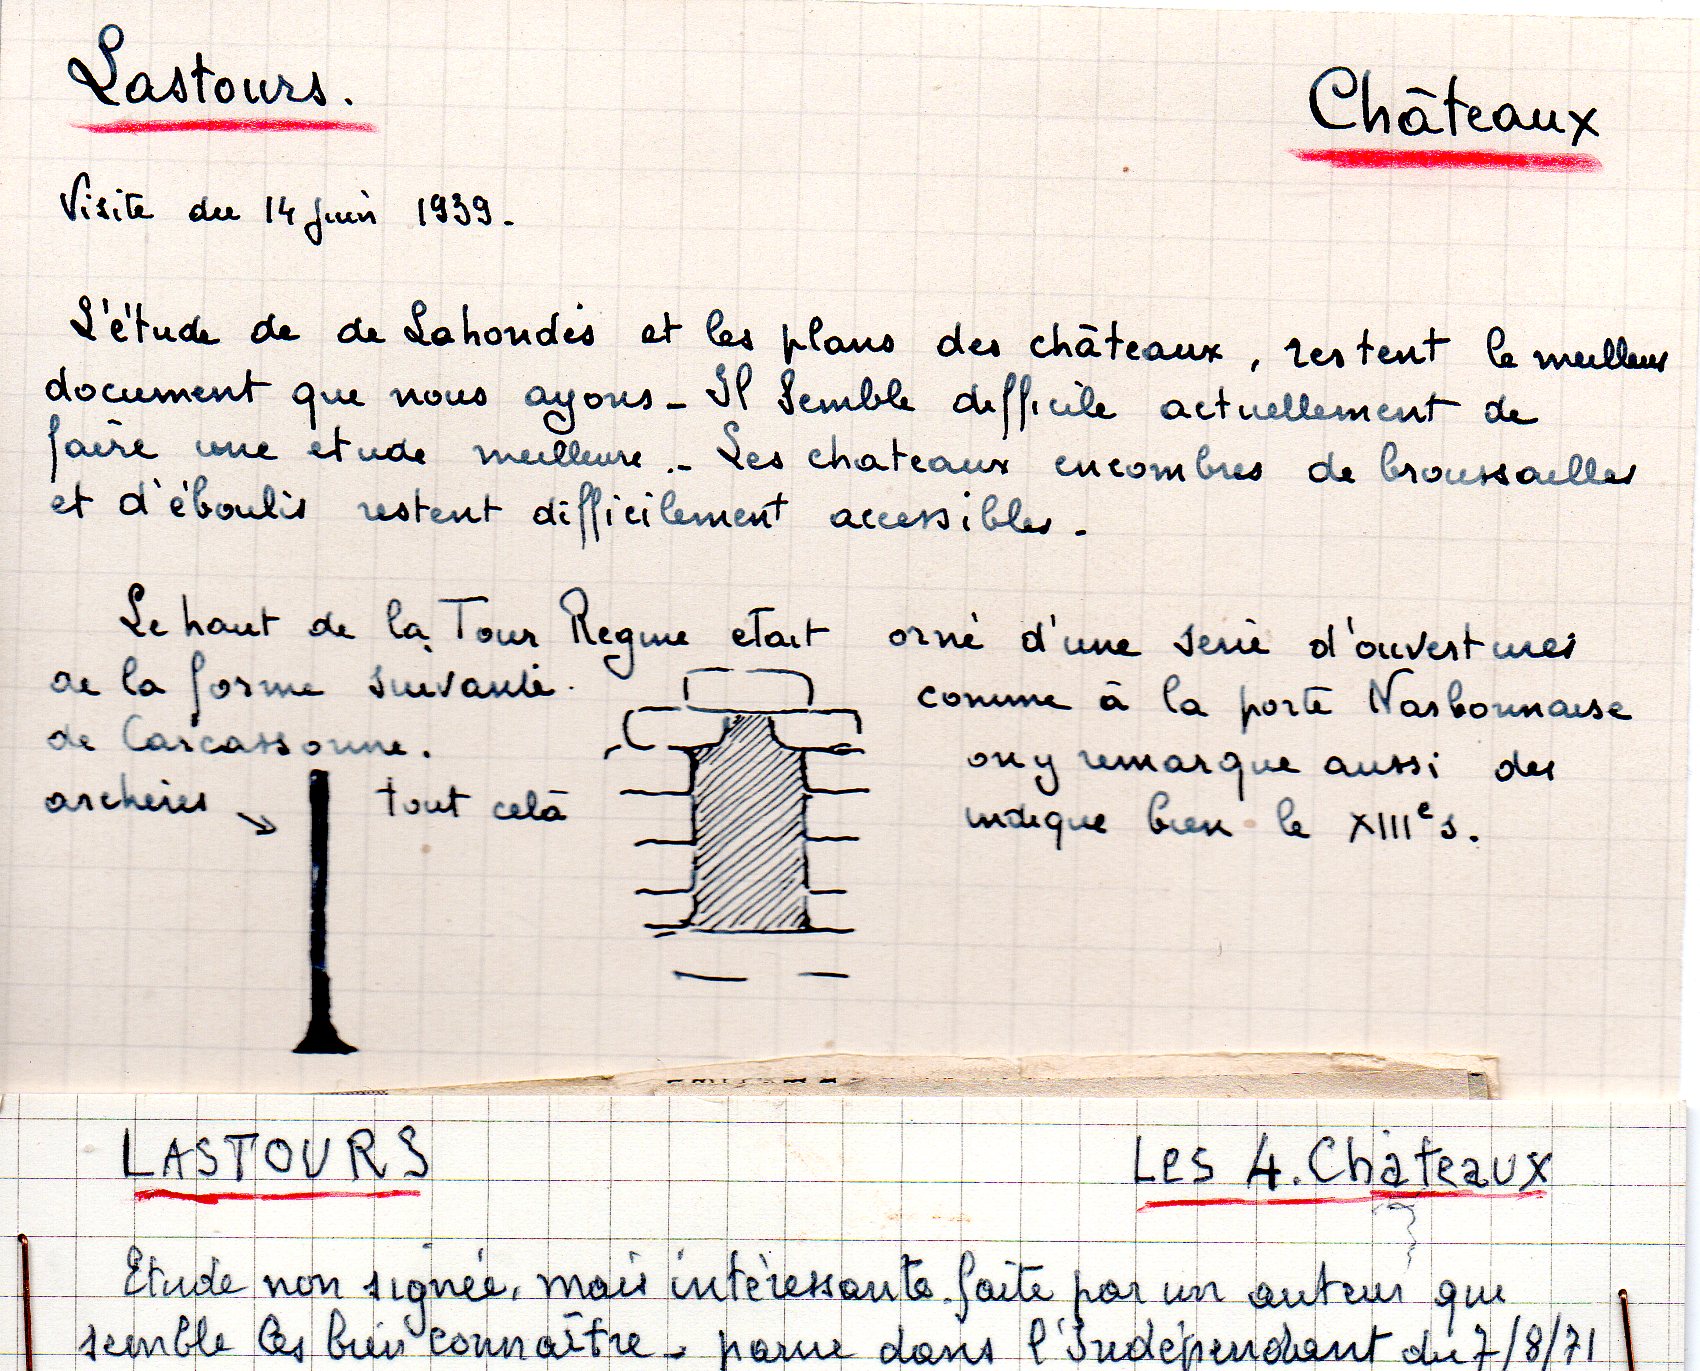 Lastours. Châteaux
Visite du 14 juin 1939.
L'étude de de Lahondès et les plans des châteaux, restent le meilleur
document que nous ayons - Il semble difficile actuellement de
faire une etude meilleure.- Les chateaux encombres de broussailles
et d'éboulis restent difficilement accessibles -
Le haut de la Tour Regine etait orné d'une serie d'ouvertures
de la forme suivante. comme à la porte Narbonnaise
de Carcassonne. on y remarque aussi des
archères → tout celà indique bien le XIIIe s.
LASTOURS Les 4. Châteaux
Etude non signée, mais intèressante. faite par un auteur que
semble les bien connaître - parue dans l'Indépendant du 7/8/71